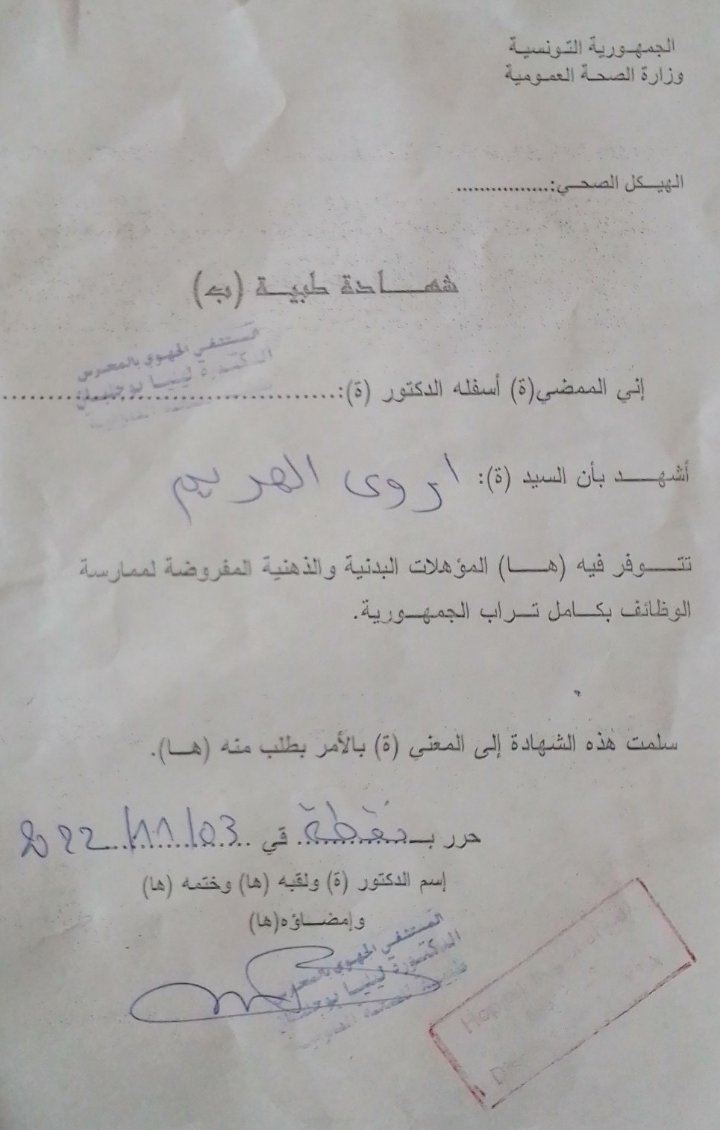 الجمهورية التونسية
وزارة الصحة العمومية
الهيكل الصحي:................
شهادة طبية (ب)
المستشفى الجهوي بالمحرس
الدكتورة لينيا
إني الممضي(ة) أسفله الدكتور (ة):........................................
أشهد بأن السيد (ة): اروى الهريم
تتوفر فيه (ها) المؤهلات البدنية والذهنية المفروضة لممارسة
الوظائف بكامل تراب الجمهورية.
سلمت هذه الشهادة إلى المعني (ة) بالأمر بطلب منه (ها).
حرر بـ نفطة في 2022/11/03
إسم الدكتور (ة) ولقبه (ها) وختمه (ها)
وإمضاؤه(ها)
المستشفى الجهوي بالمحرس
الدكتورة لينيا